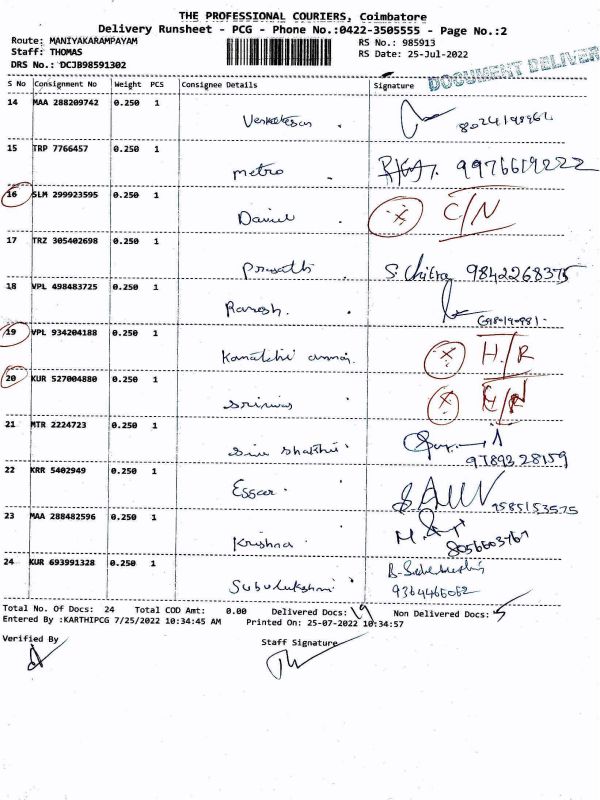 THE PROFESSIONAL COURIERS, Coimbatore
Delivery Runsheet - PCG - Phone No.:0422-3505555 - Page No.:2
Route: MANIYAKARAMPAYAM RS No.: 985913
Staff: THOMAS RS Date: 25-Jul-2022
DRS No.: DCJB98591302
DOCUMENT DELIVER
S No Consignment No Weight PCS Consignee Details Signature
14 MAA 288209742 0.250 1
Venkatesan
15 TRP 7766457 0.250 1
metro 9976619222
16 SLM 299923595 0.250 1
Daniel C/N
17 TRZ 305402698 0.250 1
Prasath S. Chitra 9842268375
18 VPL 498483725 0.250 1
Ramesh.
19 VPL 934204188 0.250 1
Kamatchi ammaj H/R
20 KUR 527004880 0.250 1
srinivas
21 MTR 2224723 0.250 1
Siva Shakthi 9789328159
22 KRR 5402949 0.250 1
Essar 9585153575
23 MAA 288482596 0.250 1
Krishna 8056603767
24 KUR 693991328 0.250 1
Subulakshmi 9364466062
Total No. Of Docs: 24 Total COD Amt: 0.00 Delivered Docs: 19 Non Delivered Docs: 5
Entered By :KARTHIPCG 7/25/2022 10:34:45 AM Printed On: 25-07-2022 10:34:57
Verified By Staff Signature